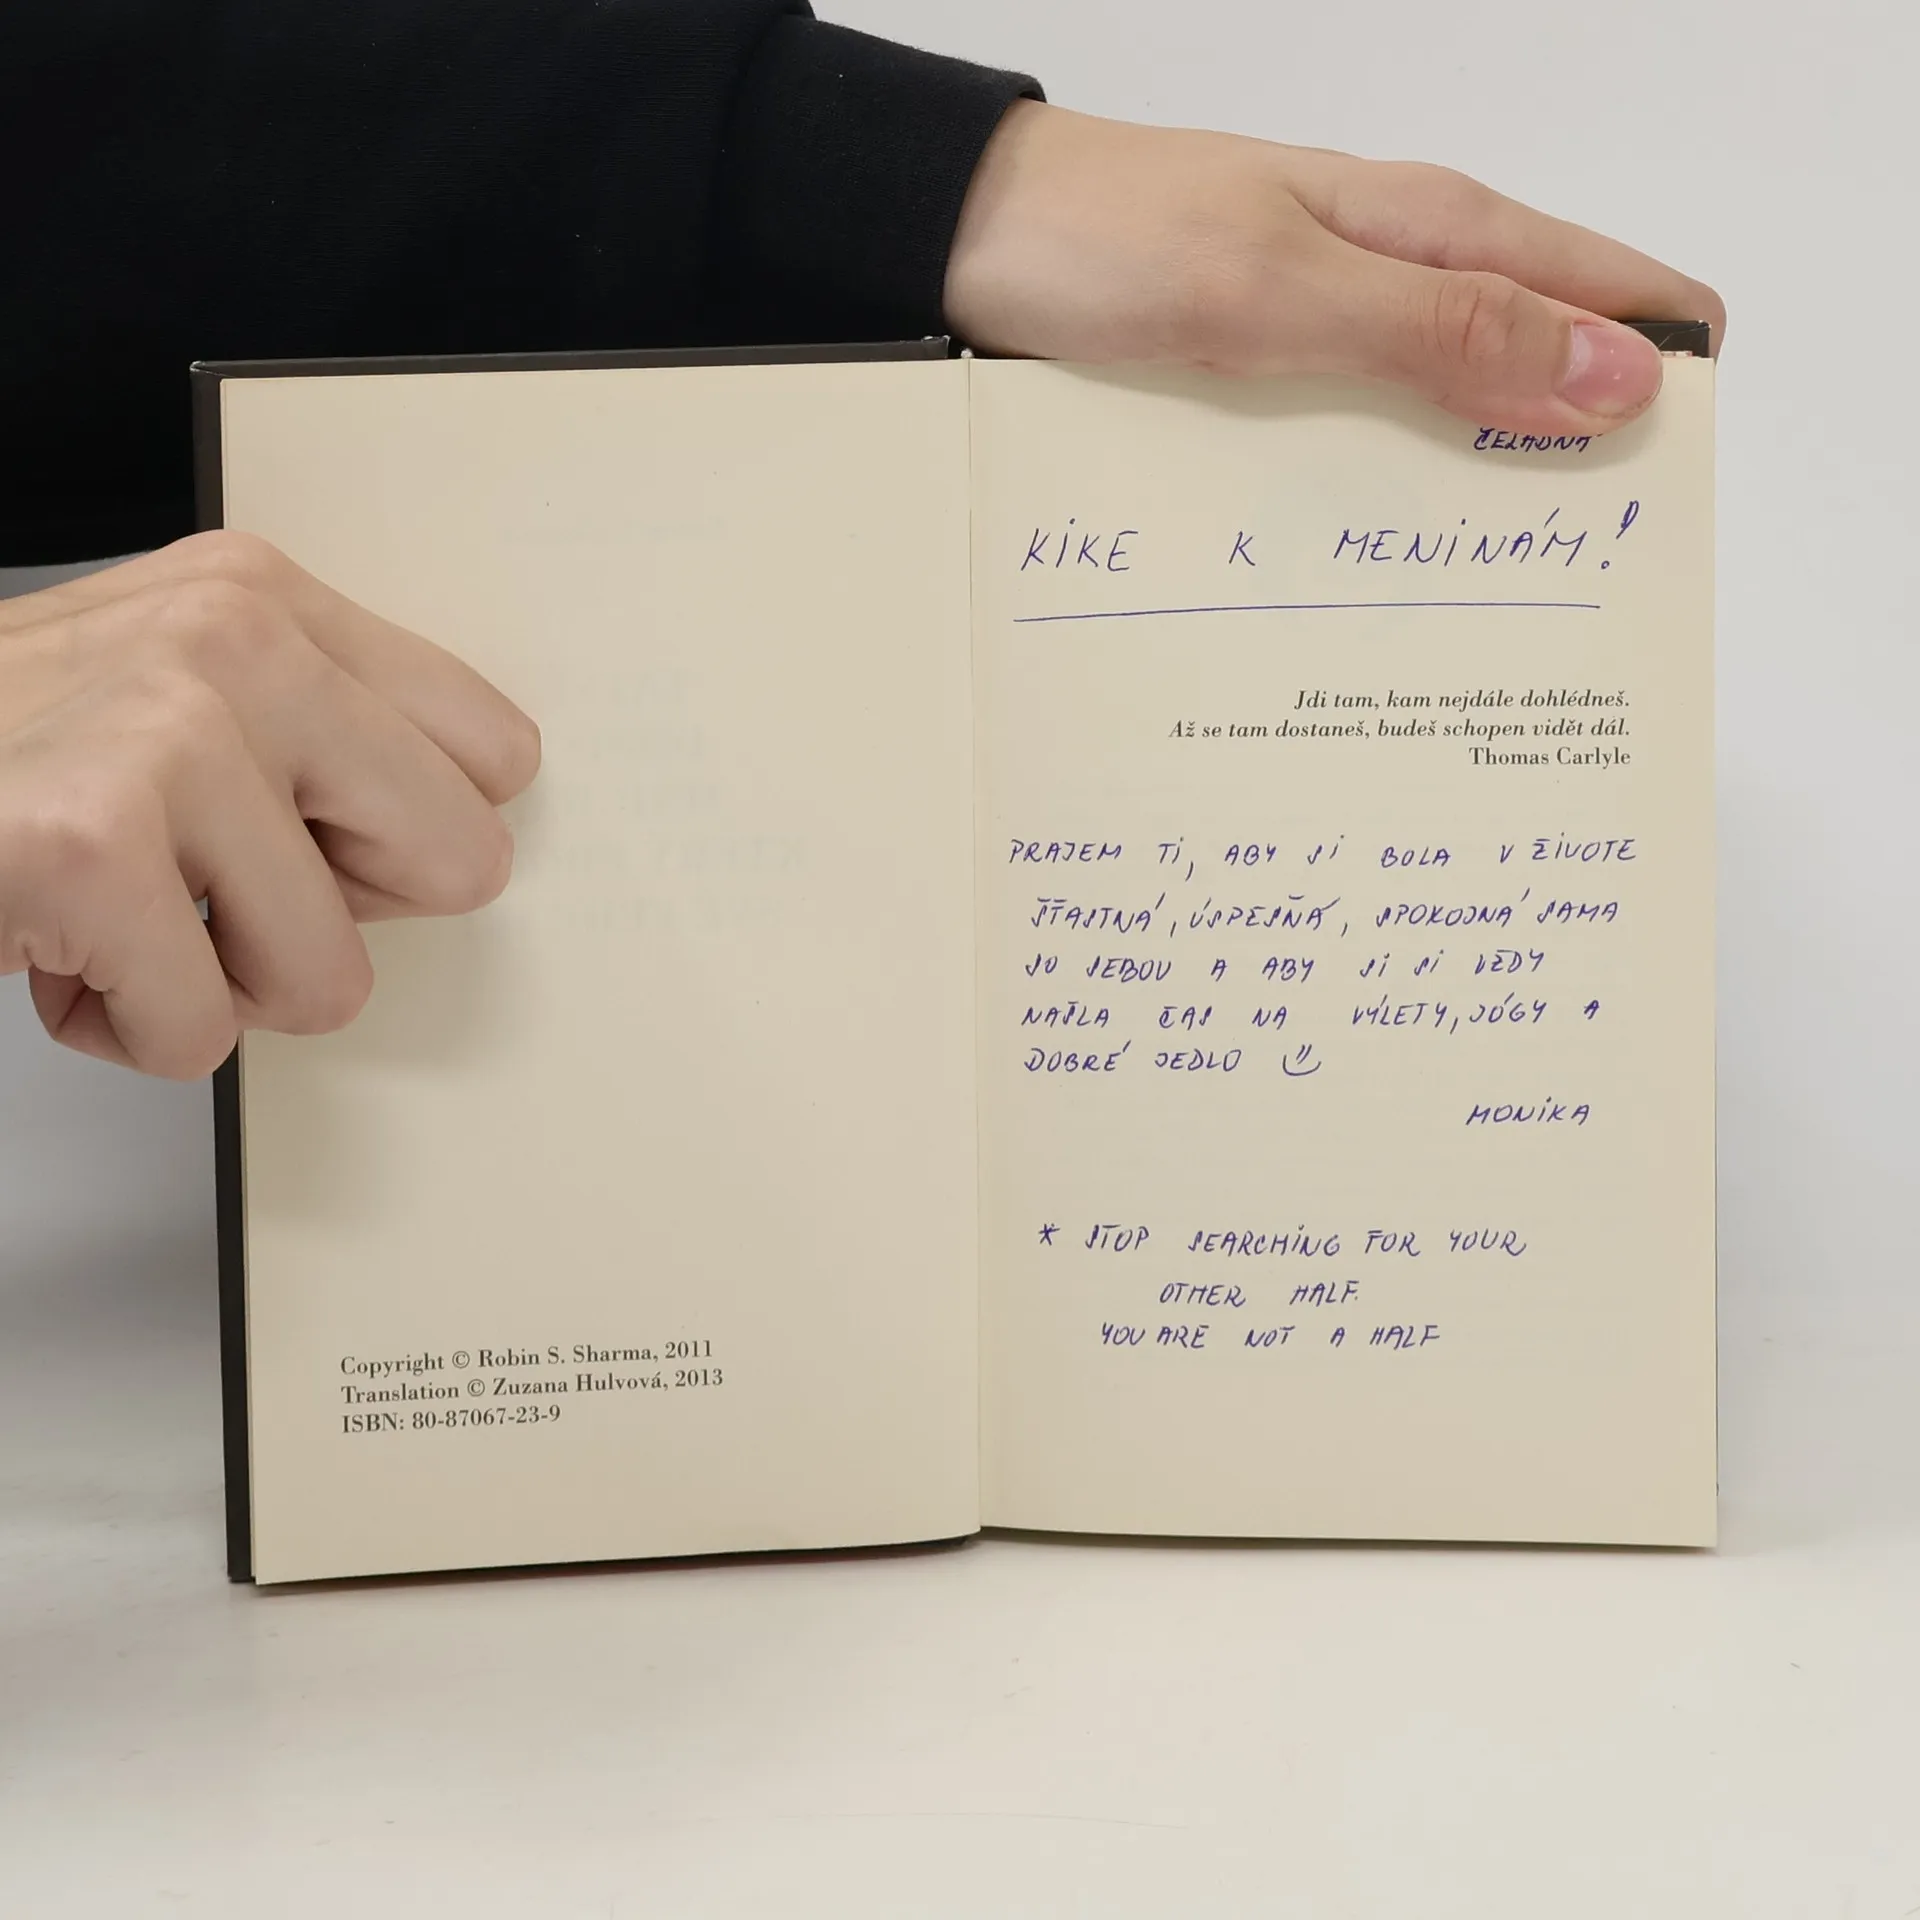 Copyright © Robin S. Sharma, 2011
Translation © Zuzana Hulvová, 2013
ISBN: 80-87067-23-9
ČELADNÁ
KIKE K MENINÁM!
Jdi tam, kam nejdále dohlédneš.
Až se tam dostaneš, budeš schopen vidět dál.
Thomas Carlyle
PRAJEM TI, ABY SI BOLA V ŽIVOTE
ŠŤASTNÁ, ÚSPEŠŇÁ, SPOKOJNÁ SAMA
SO SEBOU A ABY SI SI VŽDY
NAŠLA ČAS NA VÝLETY, JÓGY A
DOBRÉ JEDLO
MONIKA
* STOP SEARCHING FOR YOUR
OTHER HALF.
YOU ARE NOT A HALF